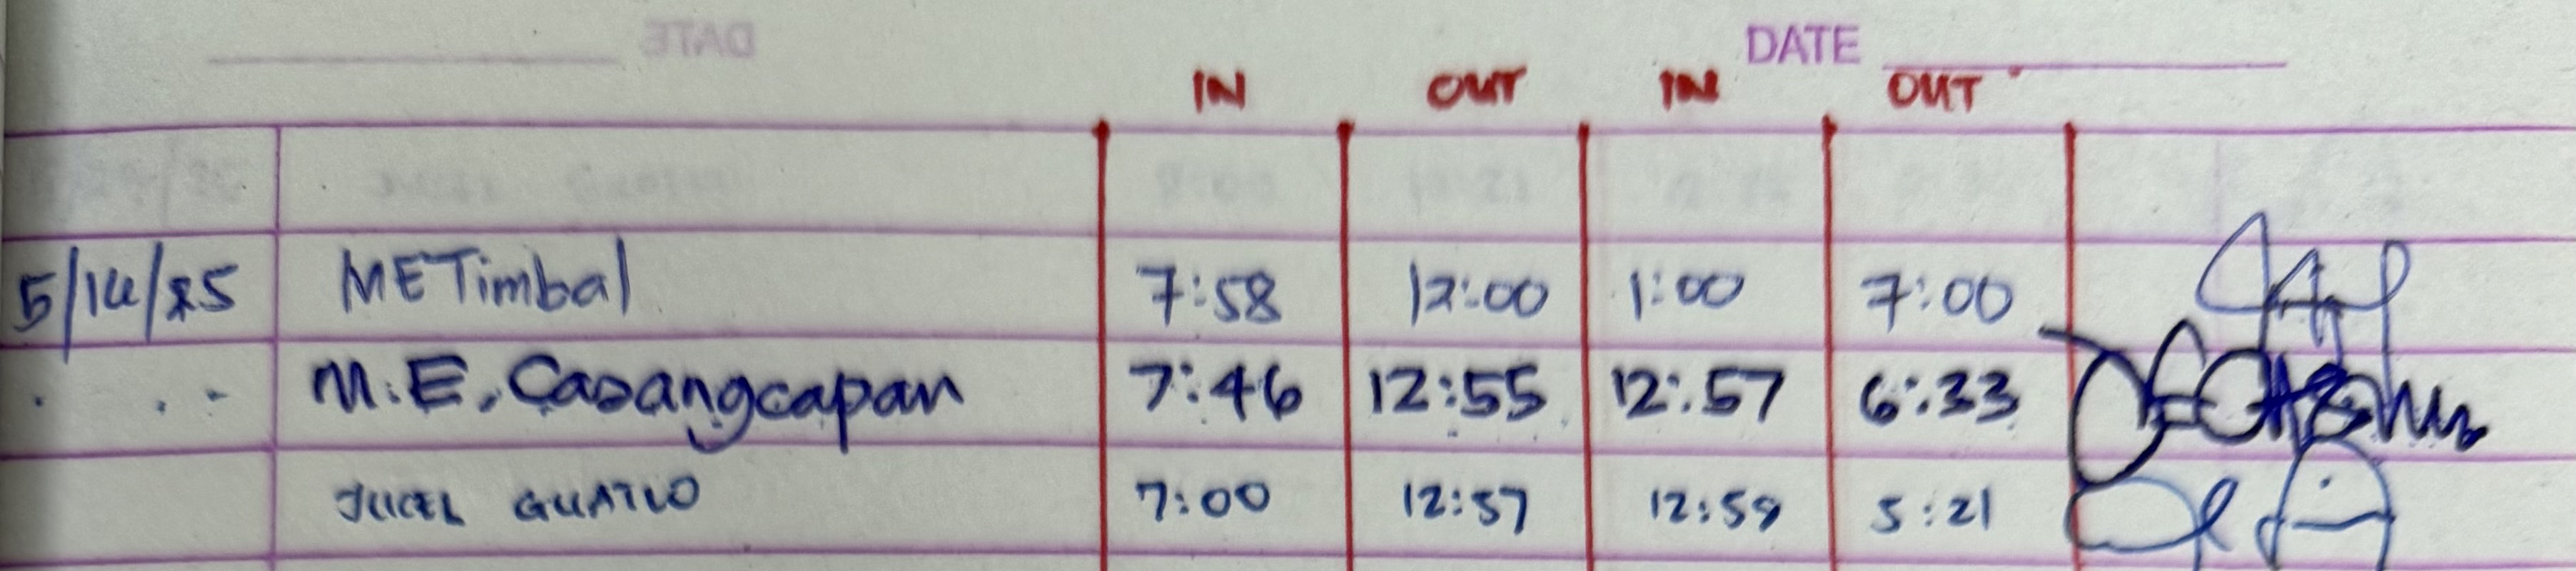 DATE
IN OUT IN OUT
5/14/25 METimbal 7:58 12:00 1:00 7:00
. . . M.E. Casangcapan 7:46 12:55 12:57 6:33
JUCEL GUATLO 7:00 12:57 12:59 5:21